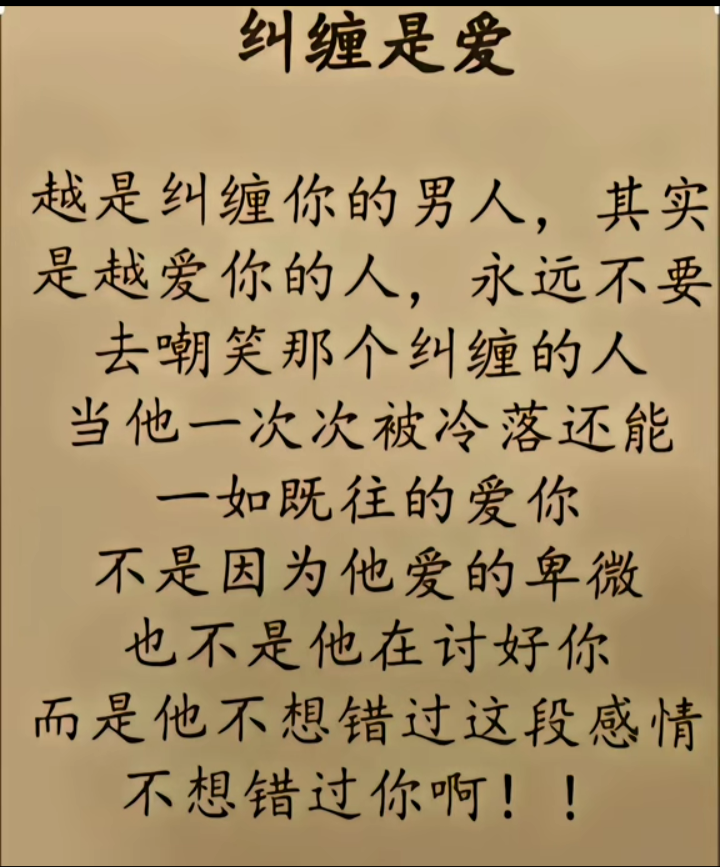 纠缠是爱
越是纠缠你的男人，其实
是越爱你的人，永远不要
去嘲笑那个纠缠的人
当他一次次被冷落还能
一如既往的爱你
不是因为他爱的卑微
也不是他在讨好你
而是他不想错过这段感情
不想错过你啊！！